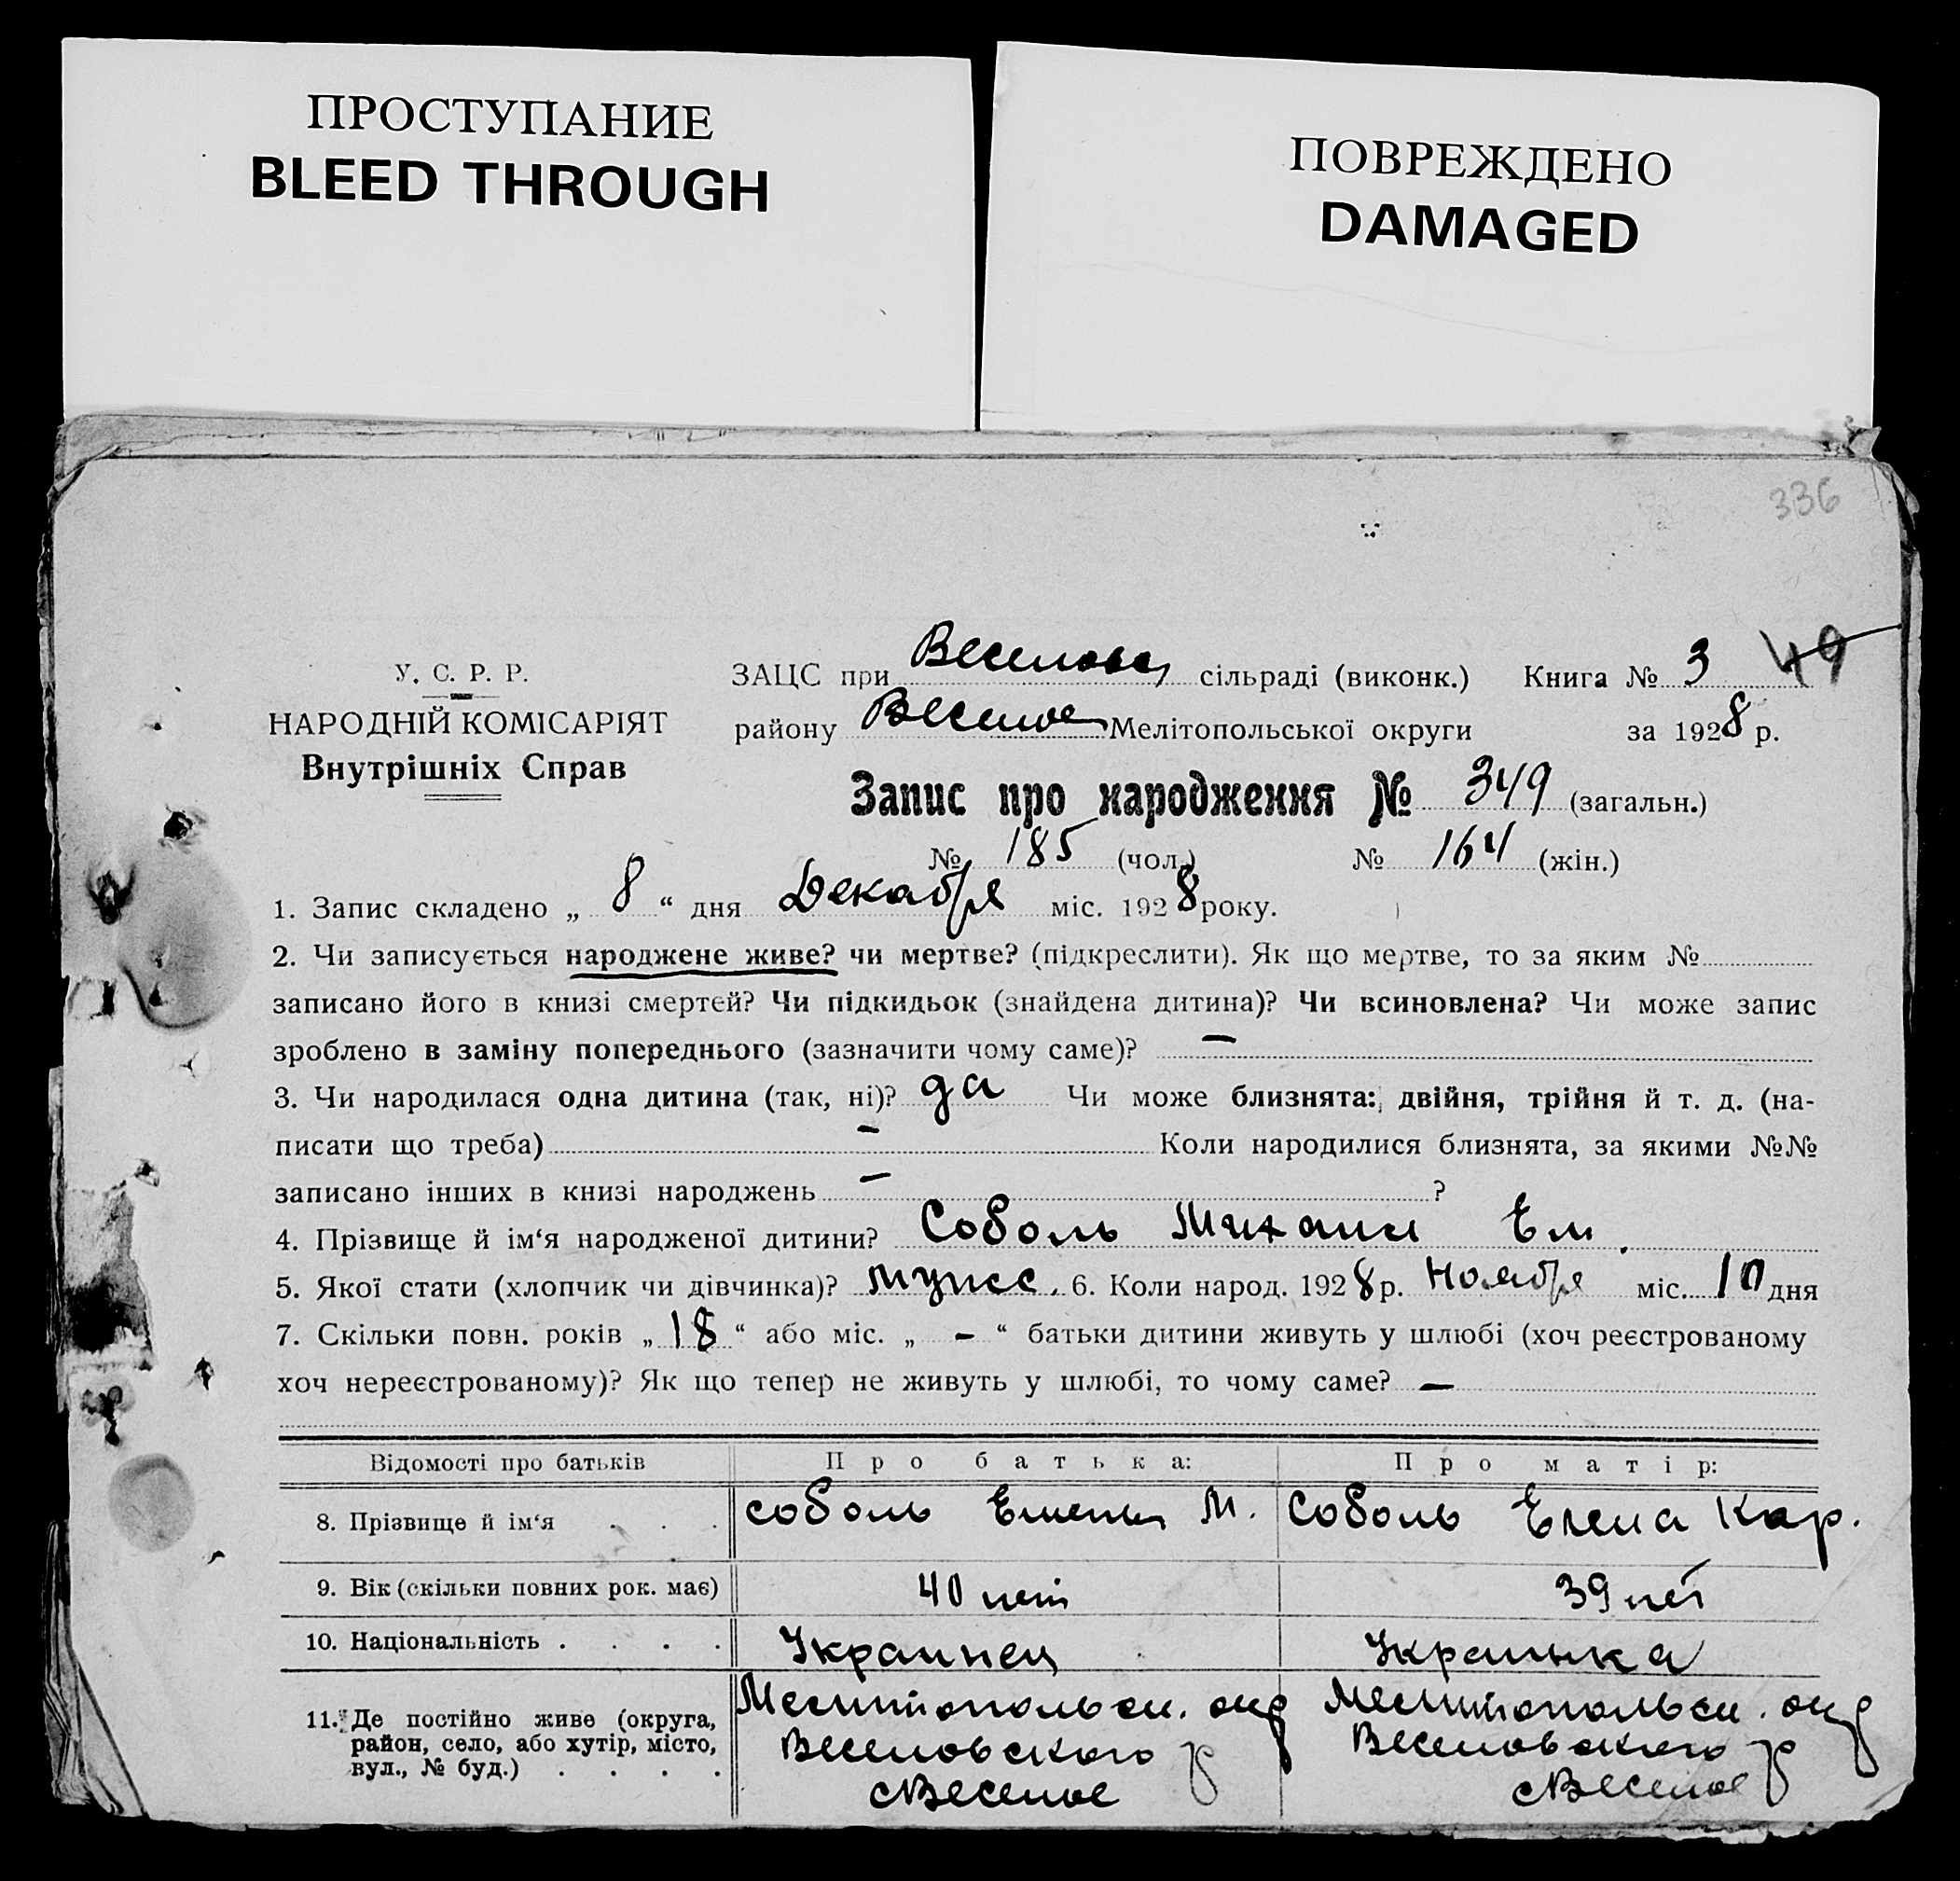 ПРОСТУПАНИЕ
BLEED THROUGH
ПОВРЕЖДЕНО
DAMAGED
336
У. С. Р. Р.
НАРОДНІЙ КОМІСАРІЯТ
Внутрішніх Справ
ЗАЦС при Веселовск сільраді (виконк.) Книга № 3 49
району Веселое Мелітопольської округи за 1928 р.
Запис про народження № 349 (загальн.)
№ 185 (чол.) № 164 (жін.)
1. Запис складено „ 8 “ дня Декабря міс. 1928 року.
2. Чи записується народжене живе? чи мертве? (підкреслити). Як що мертве, то за яким №
записано його в книзі смертей? Чи підкидьок (знайдена дитина)? Чи всиновлена? Чи може запис
зроблено в заміну попереднього (зазначити чому саме)? —
3. Чи народилася одна дитина (так, ні)? да Чи може близнята: двійня, трійня й т. д. (на-
писати що треба) — Коли народилися близнята, за якими №№
записано інших в книзі народжень — ?
4. Прізвище й ім‘я народженої дитини? Соболь Михаил Ем.
5. Якої стати (хлопчик чи дівчинка)? мужс. 6. Коли народ. 1928 р. Ноября міс. 10 дня
7. Скільки повн. років „ 18 “ або міс. „ – “ батьки дитини живуть у шлюбі (хоч реєстрованому
хоч нереєстрованому)? Як що тепер не живуть у шлюбі, то чому саме? —
Відомості про батьків Про батька: Про матір:
8. Прізвище й ім‘я . . . Соболь Емельян М. Соболь Елена Кар.
9. Вік (скільки повних рок. має) 40 лет 39 лет
10. Національність . . . . Украинец Украинка
11. Де постійно живе (округа, Мелитопольск. окр Мелитопольск. окр
район, село, або хутір, місто, Веселовского р Веселовского р
вул., № буд.) . . . . с Веселое с Веселое